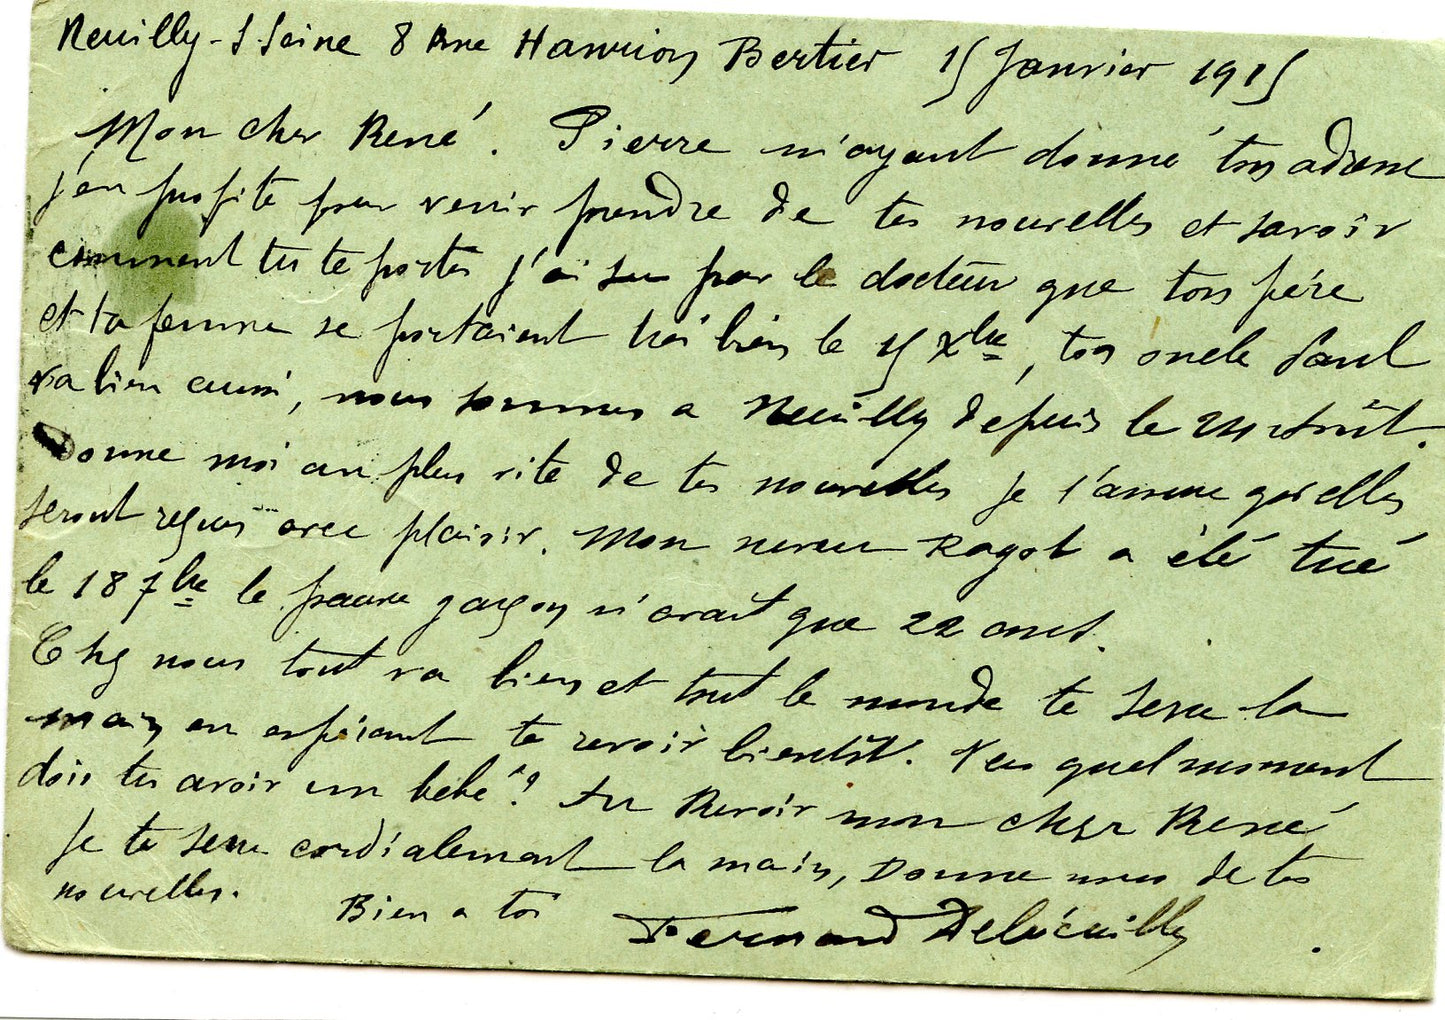 Neuilly-S-Seine 8 Rue Hanrion Bertier 15 Janvier 1915
Mon cher René. Pierre m'ayant donné ton adresse
j'en profite pour venir prendre de tes nouvelles et savoir
comment tu te portes j'ai su par le docteur que ton père
et ta femme se portaient très bien le 15 Xbre, ton oncle Paul
va bien aussi, nous sommes a Neuilly depuis le 24 Août.
Donne moi au plus vite de tes nouvelles je t'assure qu'elles
seront reçues avec plaisir. Mon neveu Ragot a été tué
le 18 7bre le pauvre garçon n'avait que 22 ans.
Chez nous tout va bien et tout le monde te serre la
main en espérant te revoir bientôt. Vers quel moment
dois tu avoir un bébé? Au Revoir mon cher René
je te serre cordialement la main, Donne nous de tes
nouvelles. Bien a toi
Fernand